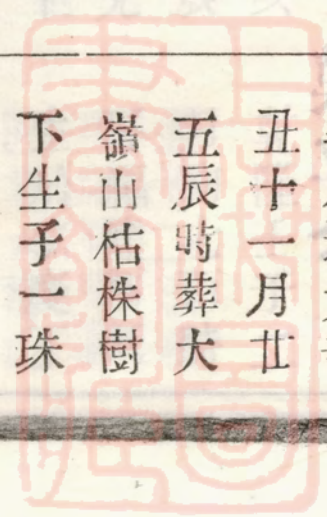 丑十一月廿
五辰時葬大
嶺山枯株樹
下生子一珠